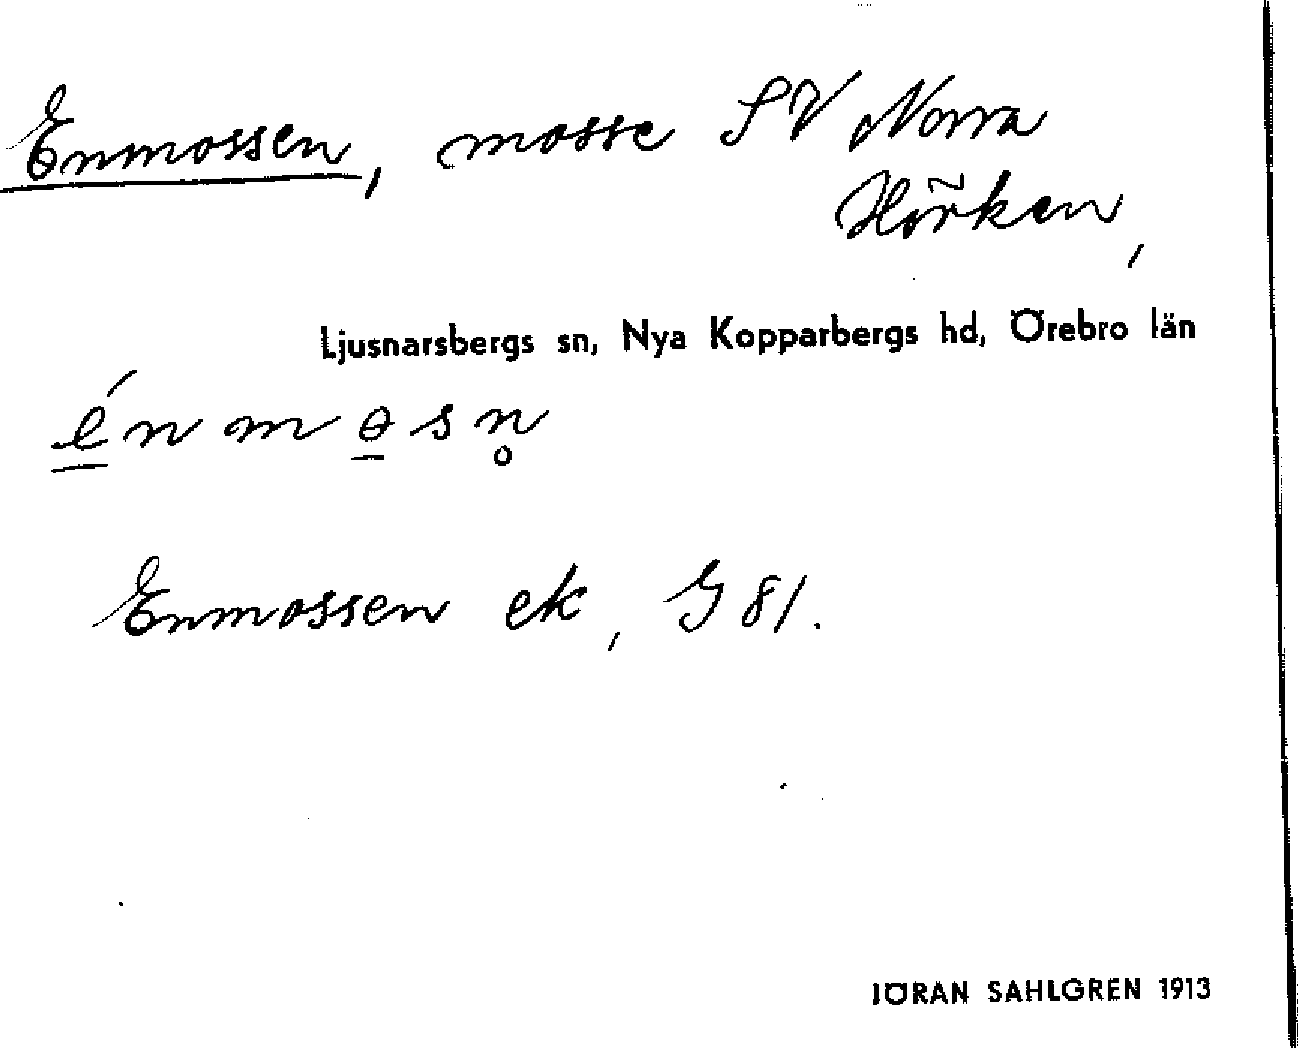 Enmossen, mosse SV Norra
Hörken,
Ljusnarsbergs sn, Nya Kopparbergs hd, Örebro län
é̲nmɵ̲sn̥
Enmossen ek, G 81.
JÖRAN SAHLGREN 1913